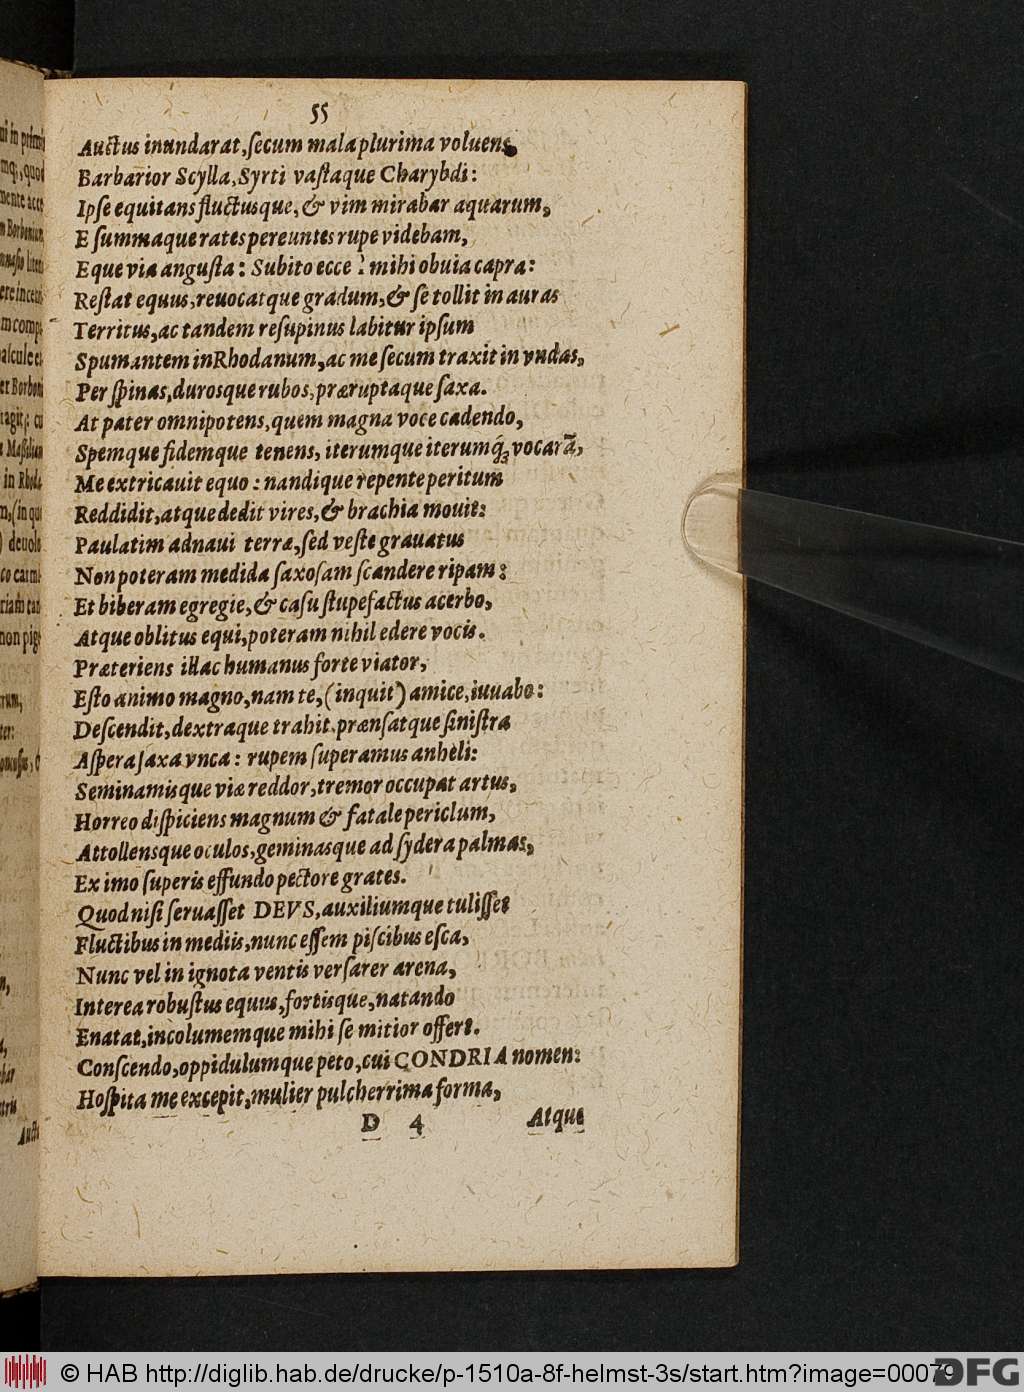 55
Auctus inundarat, ſecum mala plurima voluens,
Barbarior Scylla, Syrti vaſtaque Charybdi:
Ipſe equitans fluctusque, & vim mirabar aquarum,
E ſummaque rates pereuntes rupe videbam,
Eque via anguſta: Subito ecce! mihi obuia capra:
Reſtat equus, reuocatque gradum, & ſe tollit in auras
Territus, ac tandem reſupinus labitur ipſum
Spumantem in Rhodanum, ac me ſecum traxit in vndas,
Per ſpinas, durosque rubos, præruptaque ſaxa.
At pater omnipotens, quem magna voce cadendo,
Spemque fidemque tenens, iterumque iterumq́; vocarā,
Me extricauit equo: nandique repente peritum
Reddidit, atque dedit vires, & brachia mouit:
Paulatim adnaui terræ, ſed veſte grauatus
Non poteram medida ſaxoſam ſcandere ripam:
Et biberam egregie, & caſu ſtupefactus acerbo,
Atque oblitus equi, poteram nihil edere vocis.
Præteriens illac humanus forte viator,
Eſto animo magno, nam te, (inquit) amice, iuuabo:
Deſcendit, dextraque trahit, prænſatque ſiniſtra
Aſpera ſaxa vnca: rupem ſuperamus anheli:
Seminamisque viæ reddor, tremor occupat artus,
Horreo diſpiciens magnum & fatale periclum,
Attollensque oculos, geminasque ad ſydera palmas,
Ex imo ſuperis effundo pectore grates.
Quod niſi ſeruaſſet DEVS, auxiliumque tuliſſet
Fluctibus in mediis, nunc eſſem piſcibus eſca,
Nunc vel in ignota ventis verſarer arena,
Interea robuſtus equus, fortisque, natando
Enatat, incolumemque mihi ſe mitior offert.
Conſcendo, oppidulumque peto, cui CONDRIA nomen:
Hoſpita me excepit, mulier pulcherrima forma,
D 4
Atque
© HAB http://diglib.hab.de/drucke/p-1510a-8f-helmst-3s/start.htm?image=00079
DFG